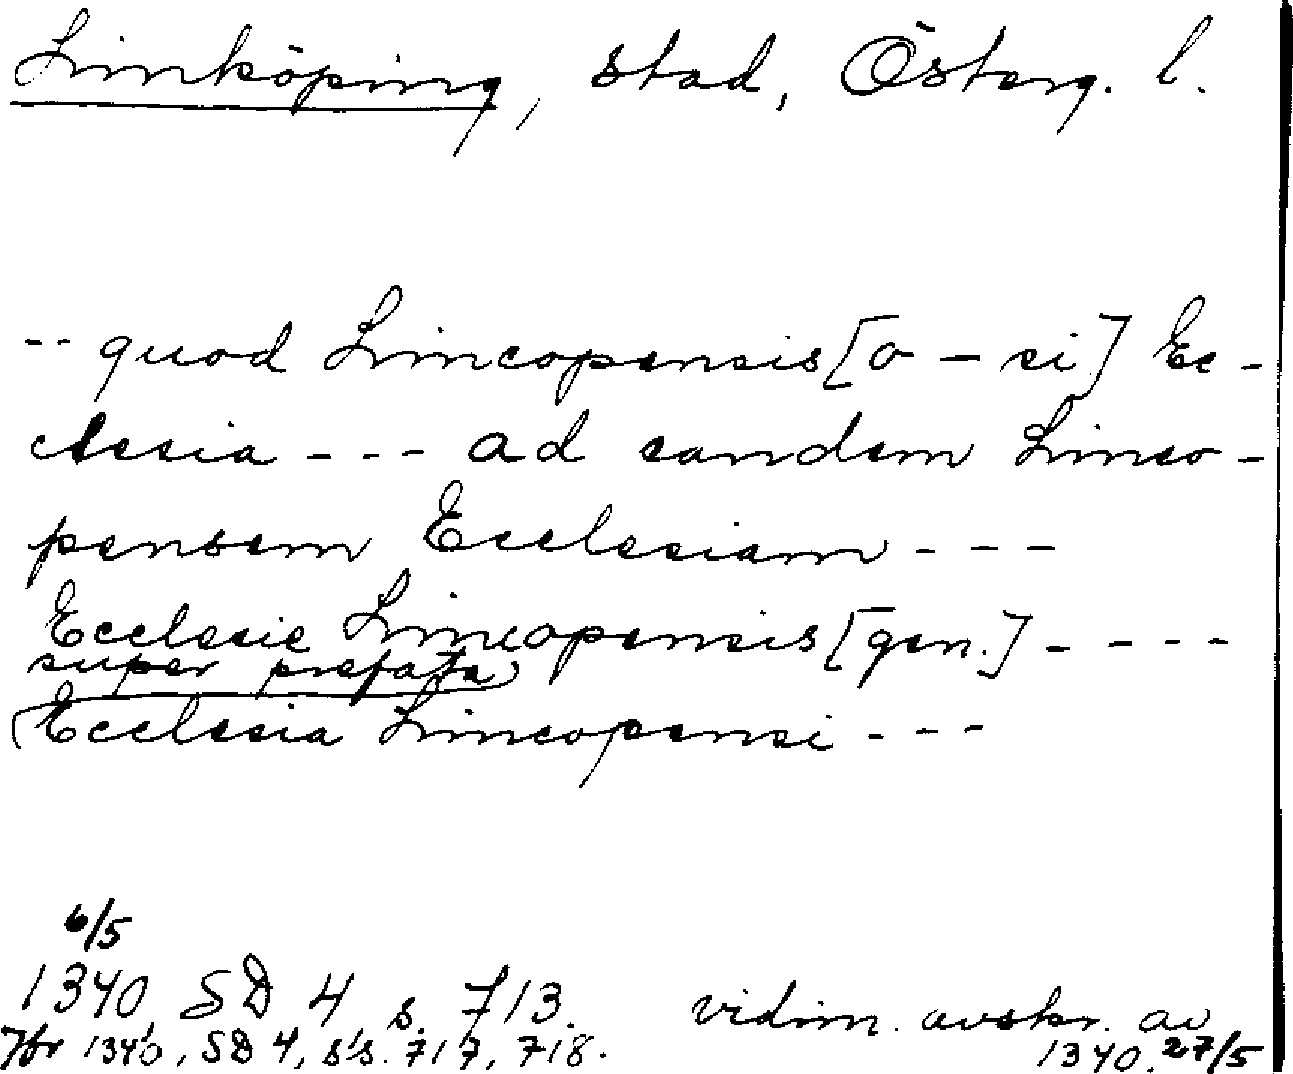 Linköping, stad, Österg. l.
-- quod Lincopensis [o - si] Ec-
clesia --- ad eandem Linco-
pensem Ecclesiam ---
Ecclesie Lincopensis [gen.] ----
super prefata
Ecclesia Lincopensi ---
6/5
1340 SD 4 s. 713. vidim. avskr. av
Jfr 1340, SD 4, s's. 717, 718. 1340. 27/5